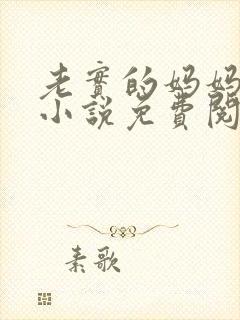 老實的媽媽
小說免費閱
素歌